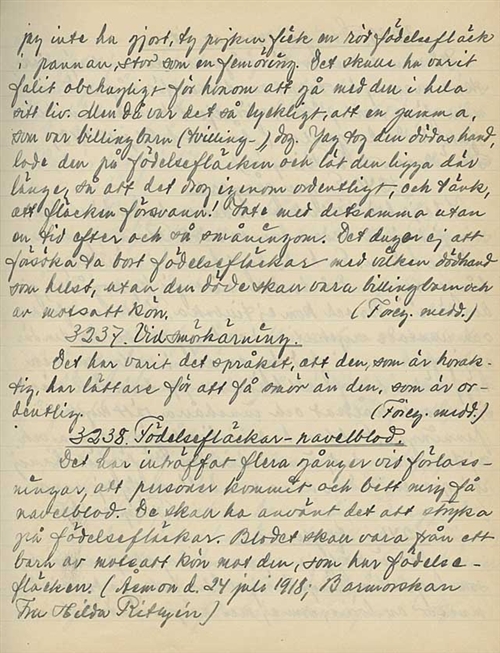 jag inte ha gjort, ty pojken fick en röd födelsefläck
i pannan, stor som en femöring. Det skulle ha varit
falit obehagligt för honom att gå med den i hela
sitt liv. Men då var det så lyckligt, att en gumma,
som var billingbarn (tvilling-), dog. Jag tog den dödas hand,
lade den på födelsefläcken och lät den ligga där
länge, så att det drog igenom ordentligt, och tänk,
att fläcken försvann! Inte med detsamma utan
en tid efter och så småningom. Det duger ej att
försöka ta bort födelsefläckar med vilken dödhand
som helst, utan den döde skall vara billingbarn och
av motsatt kön. (Föreg. medd.)
3237. Vid smörkärning.
Det har varit det språket, att den, som är horak-
tig, har lättare för att få smör än den, som är or-
dentlig. (Föreg. medd.)
3238. Födelsefläckar – navelblod.
Det har inträffat flera gånger vid förloss-
ningar, att personer kommit och bett mig få
navelblod. De skall ha använt det att stryka
på födelsefläckar. Blodet skall vara från ett
barn av motsatt kön mot den, som har födelse-
fläcken. ( d. 24 juli 1918; Barnmorskan
Fru Hilda )